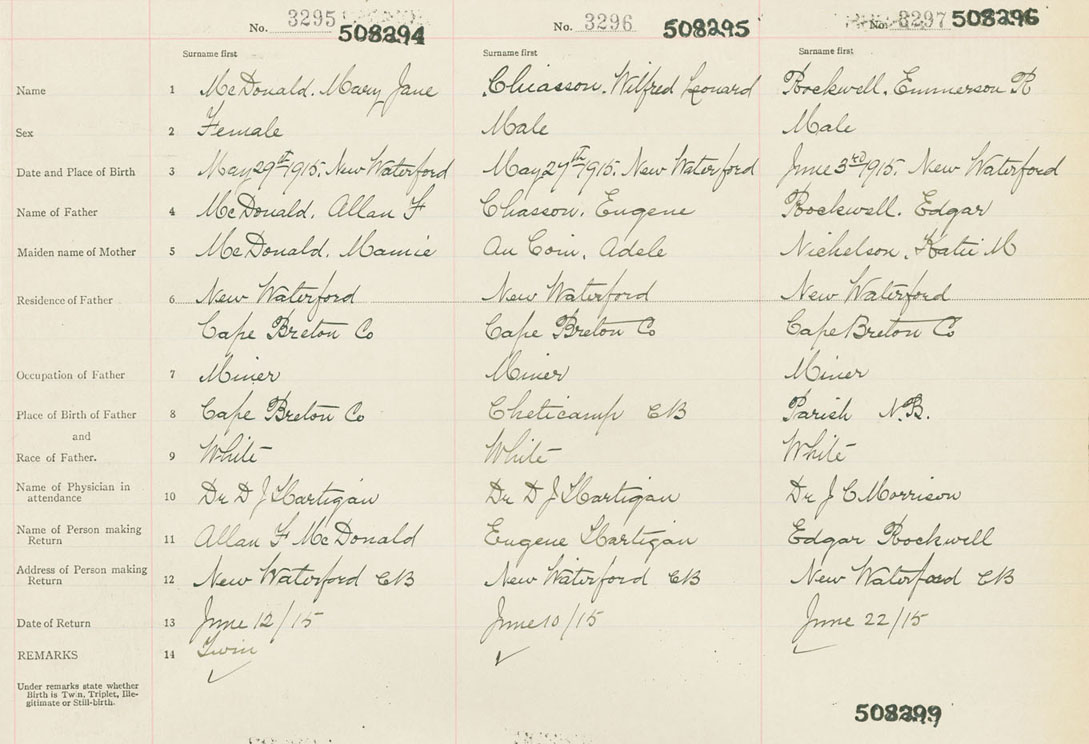 No. 3295 508294 No. 3296 508295 No. 3297 508296
Surname first Surname first Surname first
Name 1 McDonald, Mary Jane Chiasson, Wilfred Leonard Rockwell, Emmerson R
Sex 2 Female Male Male
Date and Place of Birth 3 May 29th 1915. New Waterford May 27th 1915. New Waterford June 3rd 1915. New Waterford
Name of Father 4 McDonald, Allan F Chasson, Eugene Rockwell, Edgar
Maiden name of Mother 5 McDonald, Mamie Au Coin, Adele Nickelson, Katie M
Residence of Father 6 New Waterford New Waterford New Waterford
Cape Breton Co Cape Breton Co Cape Breton Co
Occupation of Father 7 Miner Miner Miner
Place of Birth of Father 8 Cape Breton Co Cheticamp CB Parish N.B.
and
Race of Father. 9 White White White
Name of Physician in
attendance 10 Dr D J Hartigan Dr D J Hartigan Dr J C Morrison
Name of Person making
Return 11 Allan F McDonald Eugene Hartigan Edgar Rockwell
Address of Person making
Return 12 New Waterford CB New Waterford CB New Waterford CB
Date of Return 13 June 12/15 June 10/15 June 22/15
REMARKS 14 Twin
Under remarks state whether
Birth is Twin, Triplet, Ille-
gitimate or Still-birth.
508299